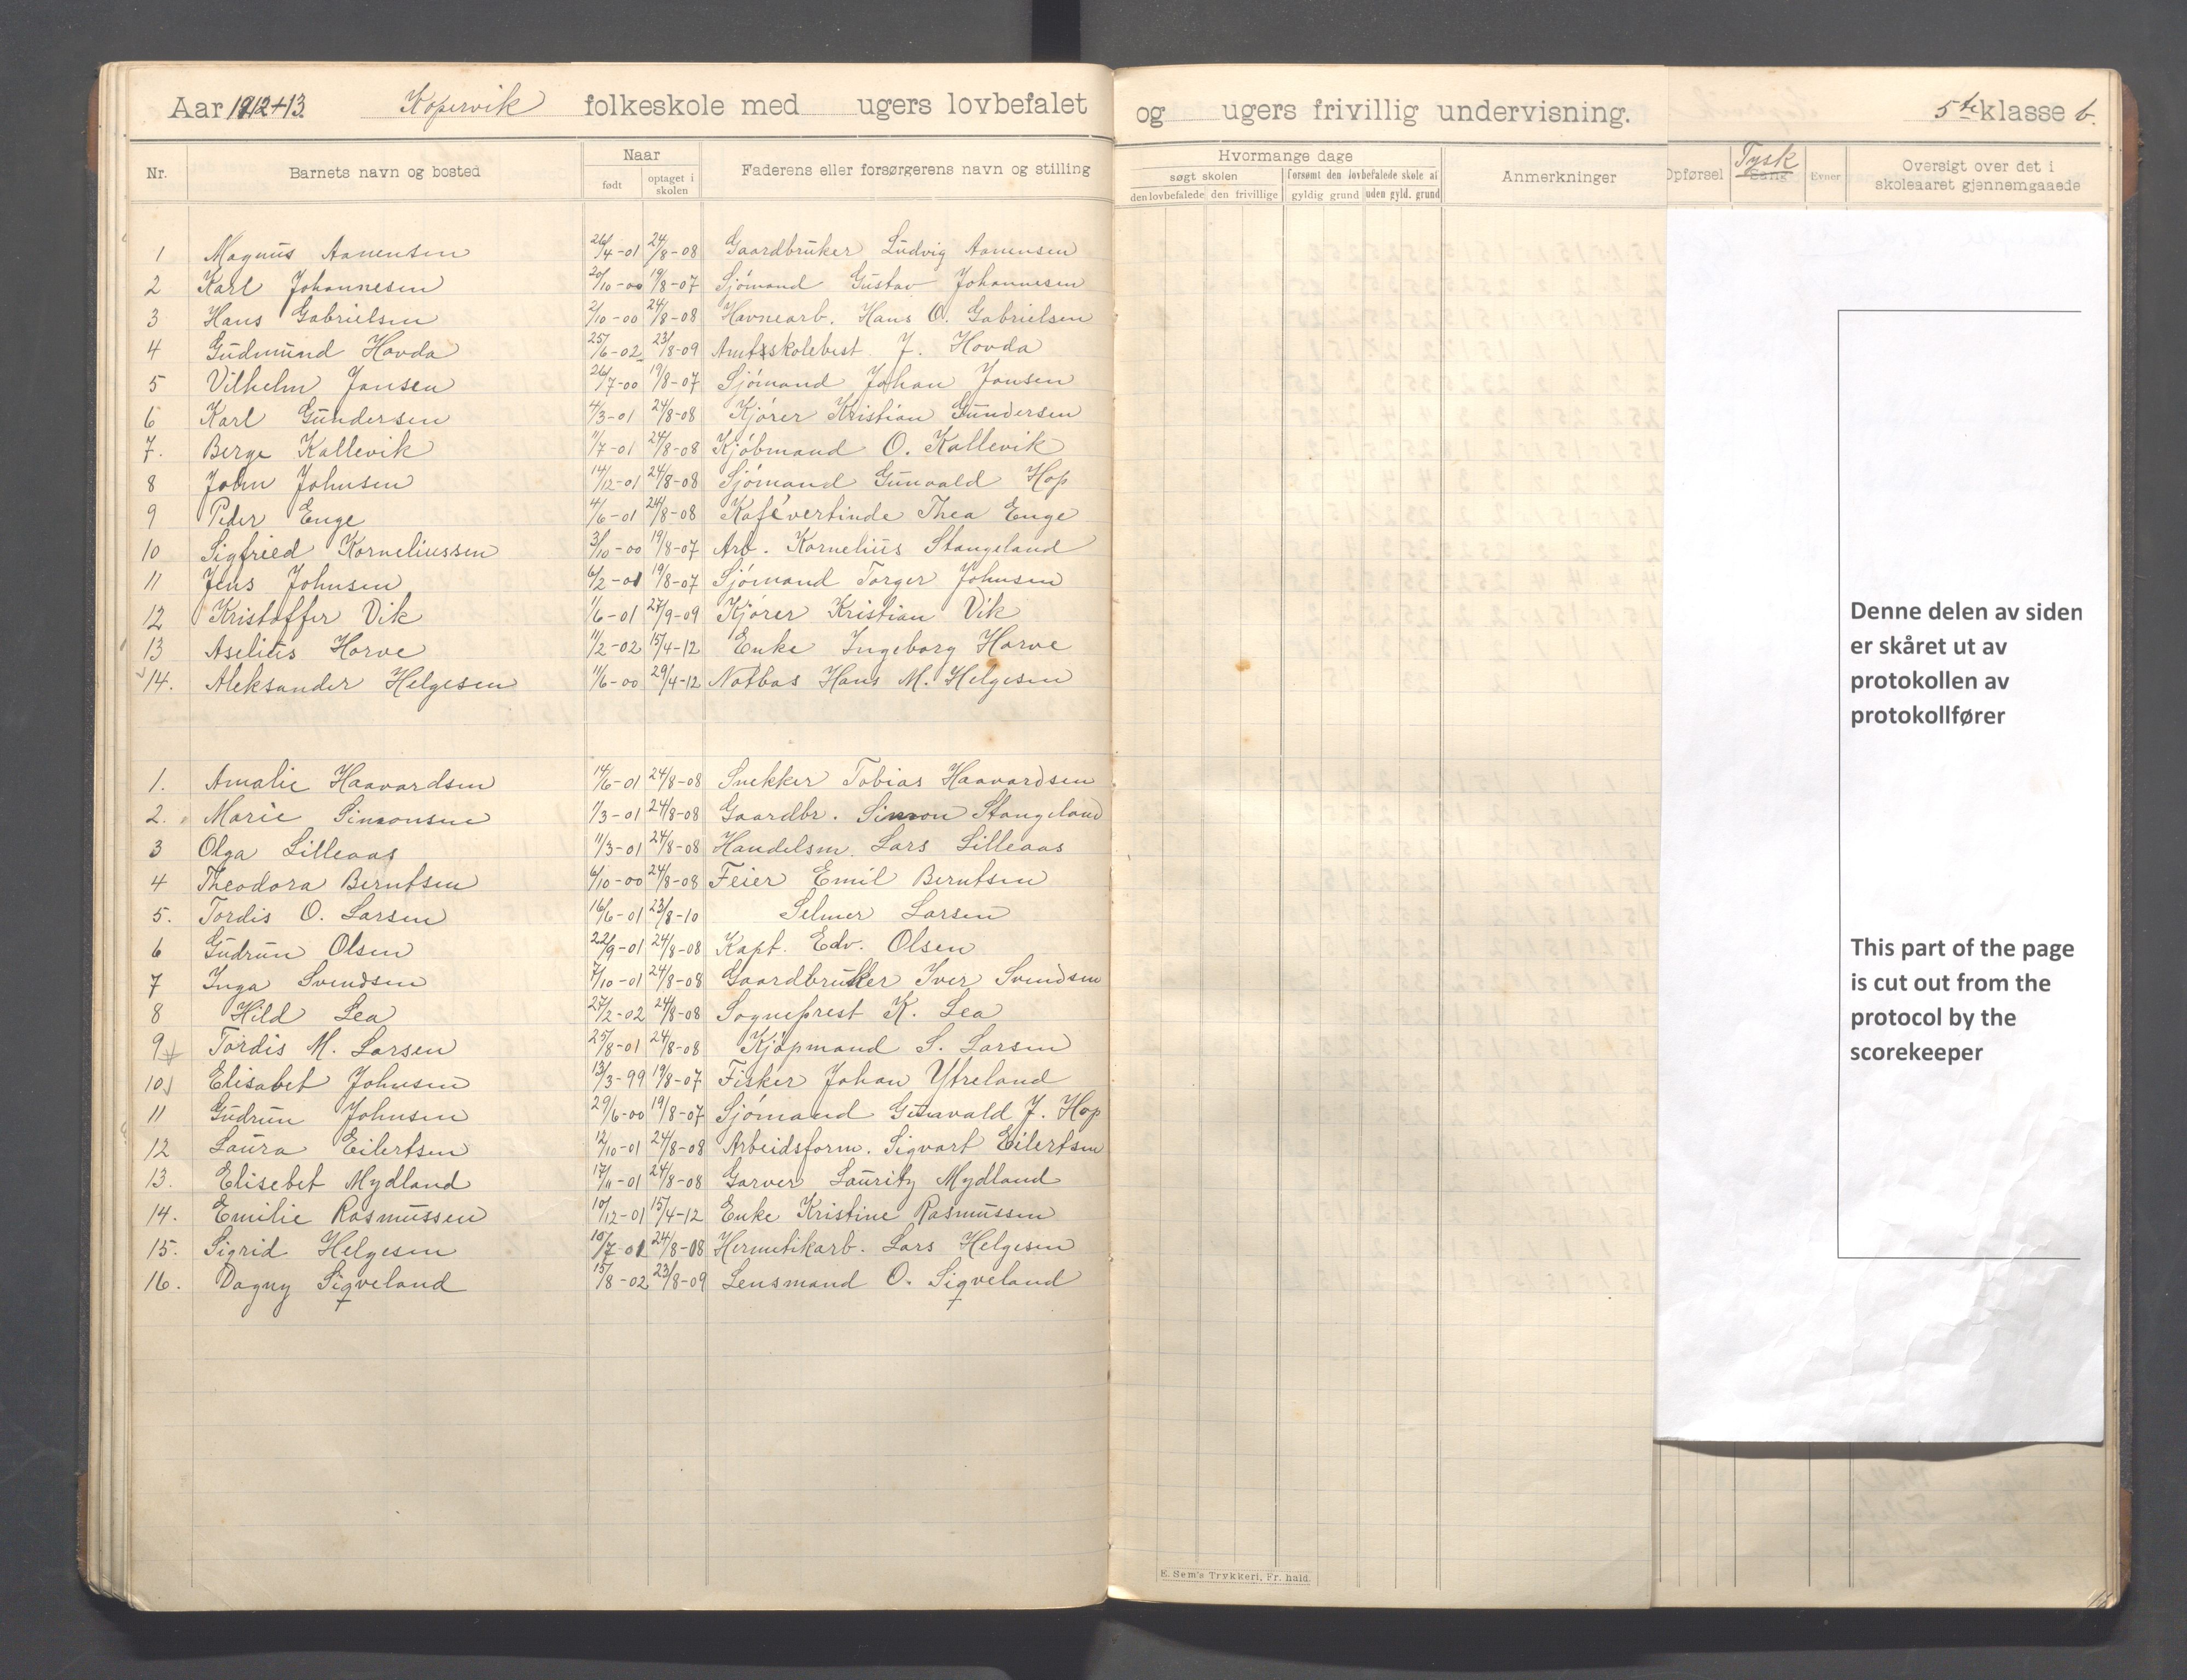 Aar 1912+13. Kopervik folkeskole med ugers lovbefalet og ugers frivillig undervisning. 5te klasse b.
Nr. Barnets navn og bosted Naar født optaget i skolen Faderens eller forsørgerens navn og stilling
Hvormange dage søgt skolen den lovbefalede den frivillige forsømt den lovbefalede skole af gyldig grund uden gyld. grund Anmerkninger Opførsel Tysk Sang Evner Oversigt over det i skoleaaret gjennemgaaede
1 Magnus Aanensen 26/4-01 24/8-08 Gaardbruker Ludvig Aanensen
2 Karl Johannesen 20/10-00 19/8-07 Sjömand Gustav Johannesen
3 Hans Gabrielsen 2/10-00 24/8-08 Havnearb. Hans O. Gabrielsen
4 Gudmund Hovda 25/6-02 23/8-09 Amtsskolebest. J. Hovda
5 Vilhelm Jansen 26/7-00 19/8-07 Sjömand Johan Jansen
6 Karl Gundersen 4/3-01 24/8-08 Kjörer Kristian Gundersen
7. Berge Kallevik 11/7-01 24/8-08 Kjöbmand O. Kallevik
8 John Johnsen 14/12-01 24/8-08 Sjömand Gunvald Hop
9 Peder Enge 4/6-01 24/8-08 Kafévertinde Thea Enge
10 Sigfried Korneliussen 3/10-00 19/8-07 Arb. Kornelius Stangeland
11 Jens Johnsen 6/2-01 19/8-07 Sjömand Torger Johnsen
12 Kristoffer Vik 1/6-01 27/9-09 Kjörer Kristian Vik
13 Aselius Horve 11/2-02 15/4-12 Enke Ingeborg Horve
14. Aleksander Helgesen 11/6-00 29/4-12 Notbas Hans M. Helgesen
1. Amalie Haavardsen 14/6-01 24/8-08 Snekker Tobias Haavardsen
2. Marie Simonsen 1/3-01 24/8-08 Gaardbr. Simon Stangeland
3 Olga Lilleaas 11/3-01 24/8-08 Handelsm. Lars Lilleaas
4 Theodora Berntsen 6/10-00 24/8-08 Feier Emil Berntsen
5. Tordis O. Larsen 16/6-01 23/8-10 Selmer Larsen
6 Gudrun Olsen 22/9-01 24/8-08 Kapt. Edv. Olsen
7 Inga Svendsen 7/10-01 24/8-08 Gaardbruker Iver Svendsen
8 Hild Lea 27/2-02 24/8-08 Sogneprest K. Lea
9 Tordis M. Larsen 25/8-01 24/8-08 Kjöpmand S. Larsen
10 Elisabet Johnsen 13/3-99 19/8-07 Fisker Johan Ytreland
11 Gudrun Johnsen 29/6-00 19/8-07 Sjömand Gunvald J. Hop
12 Laura Eilertsen 12/10-01 24/8-08 Arbeidsform. Sigvart Eilertsen
13. Elisebet Mydland 17/11-01 24/8-08 Garver Lauritz Mydland
14. Emilie Rasmussen 10/12-01 15/4-12 Enke Kristine Rasmussen
15. Sigrid Helgesen 10/7-01 24/8-08 Hermetikarb. Lars Helgesen
16. Dagny Sigveland 15/8-02 23/8-09 Lensmand O. Sigveland
Denne delen av siden
er skåret ut av
protokollen av
protokollfører
This part of the page
is cut out from the
protocol by the
scorekeeper
E. Sem's Trykkeri, Fr. hald.